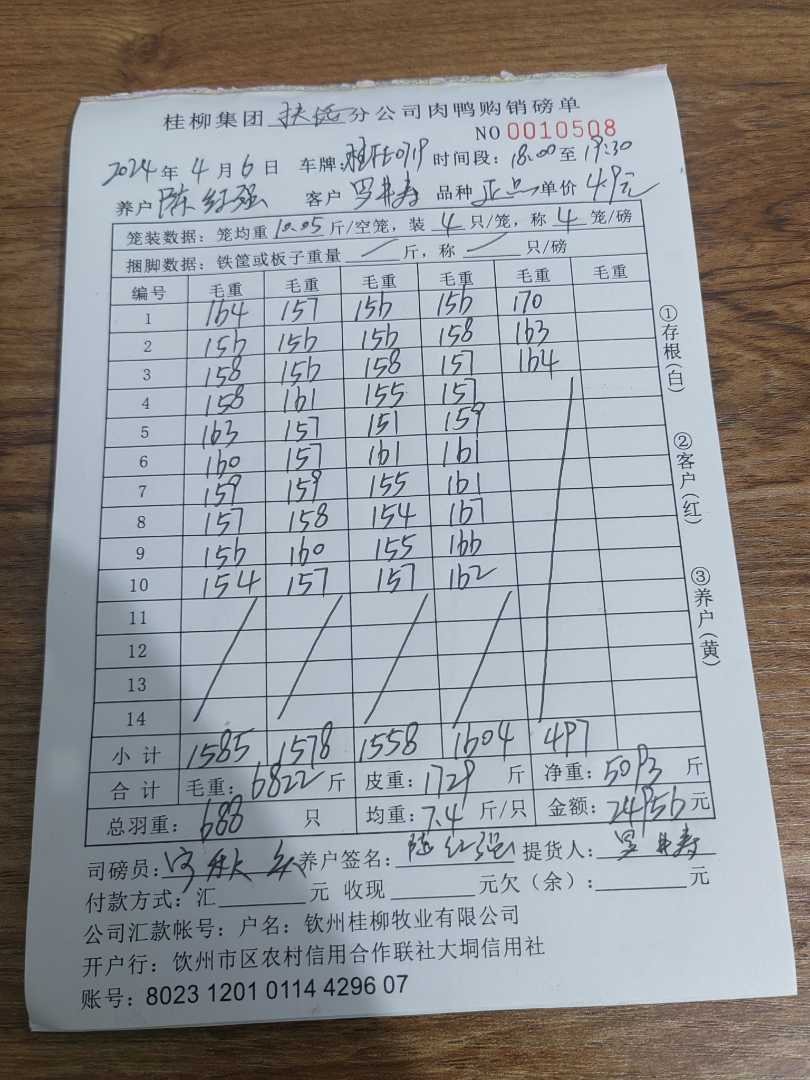 桂柳集团 扶绥 分公司肉鸭购销磅单
NO 0010508
2024 年 4 月 6 日 车牌: 时间段: 18:00 至 19:30
养户 陈红强 客户 罗 寿 品种 正品 单价 4.9元
笼装数据: 笼均重 10.05 斤/空笼, 装 4 只/笼, 称 4 笼/磅
捆脚数据: 铁筐或板子重量 / 斤, 称 / 只/磅
编号 毛重 毛重 毛重 毛重 毛重 毛重
1 164 157 156 156 170
2 156 156 156 158 163
3 158 156 158 157 164
4 158 161 155 157
5 163 157 151 159
6 160 157 161 161
7 159 159 155 161
8 157 158 154 167
9 156 160 155 166
10 154 157 157 162
11
12
13
14
小计 1585 1578 1558 1604 497
合计 毛重: 6822 斤 皮重: 1729 斤 净重: 5093 斤
总羽重: 688 只 均重: 7.4 斤/只 金额: 24956 元
司磅员: 养户签名: 陈红强 提货人: 罗 寿
付款方式: 汇 元 收现 元欠(余): 元
公司汇款帐号: 户名: 钦州桂柳牧业有限公司
开户行: 钦州市区农村信用合作联社大垌信用社
账号: 8023 1201 0114 4296 07
①存根(白)
②客户(红)
③养户(黄)